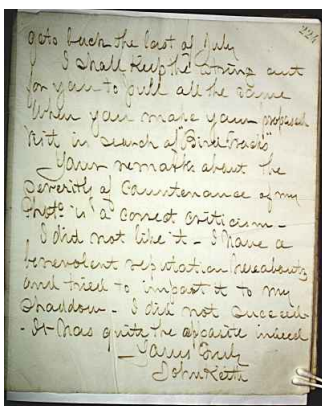 224
gets back the last of July
I shall keep the string out
for you to pull all the same
when you make your proposed
visit in search of "Bird Tracks"
Your remark about the
severity of countenance of my
Phot° is a correct criticism -
I did not like it - I have a
benevolent reputation hereabouts
and tried to impart it to my
shaddow - I did not succeed
- It has quite the oposite indeed
Yours truly
John Keith